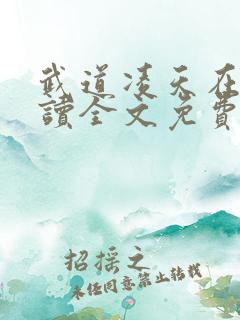 武道凌天在
讀全文免費
招摇之
未经同意禁止转载